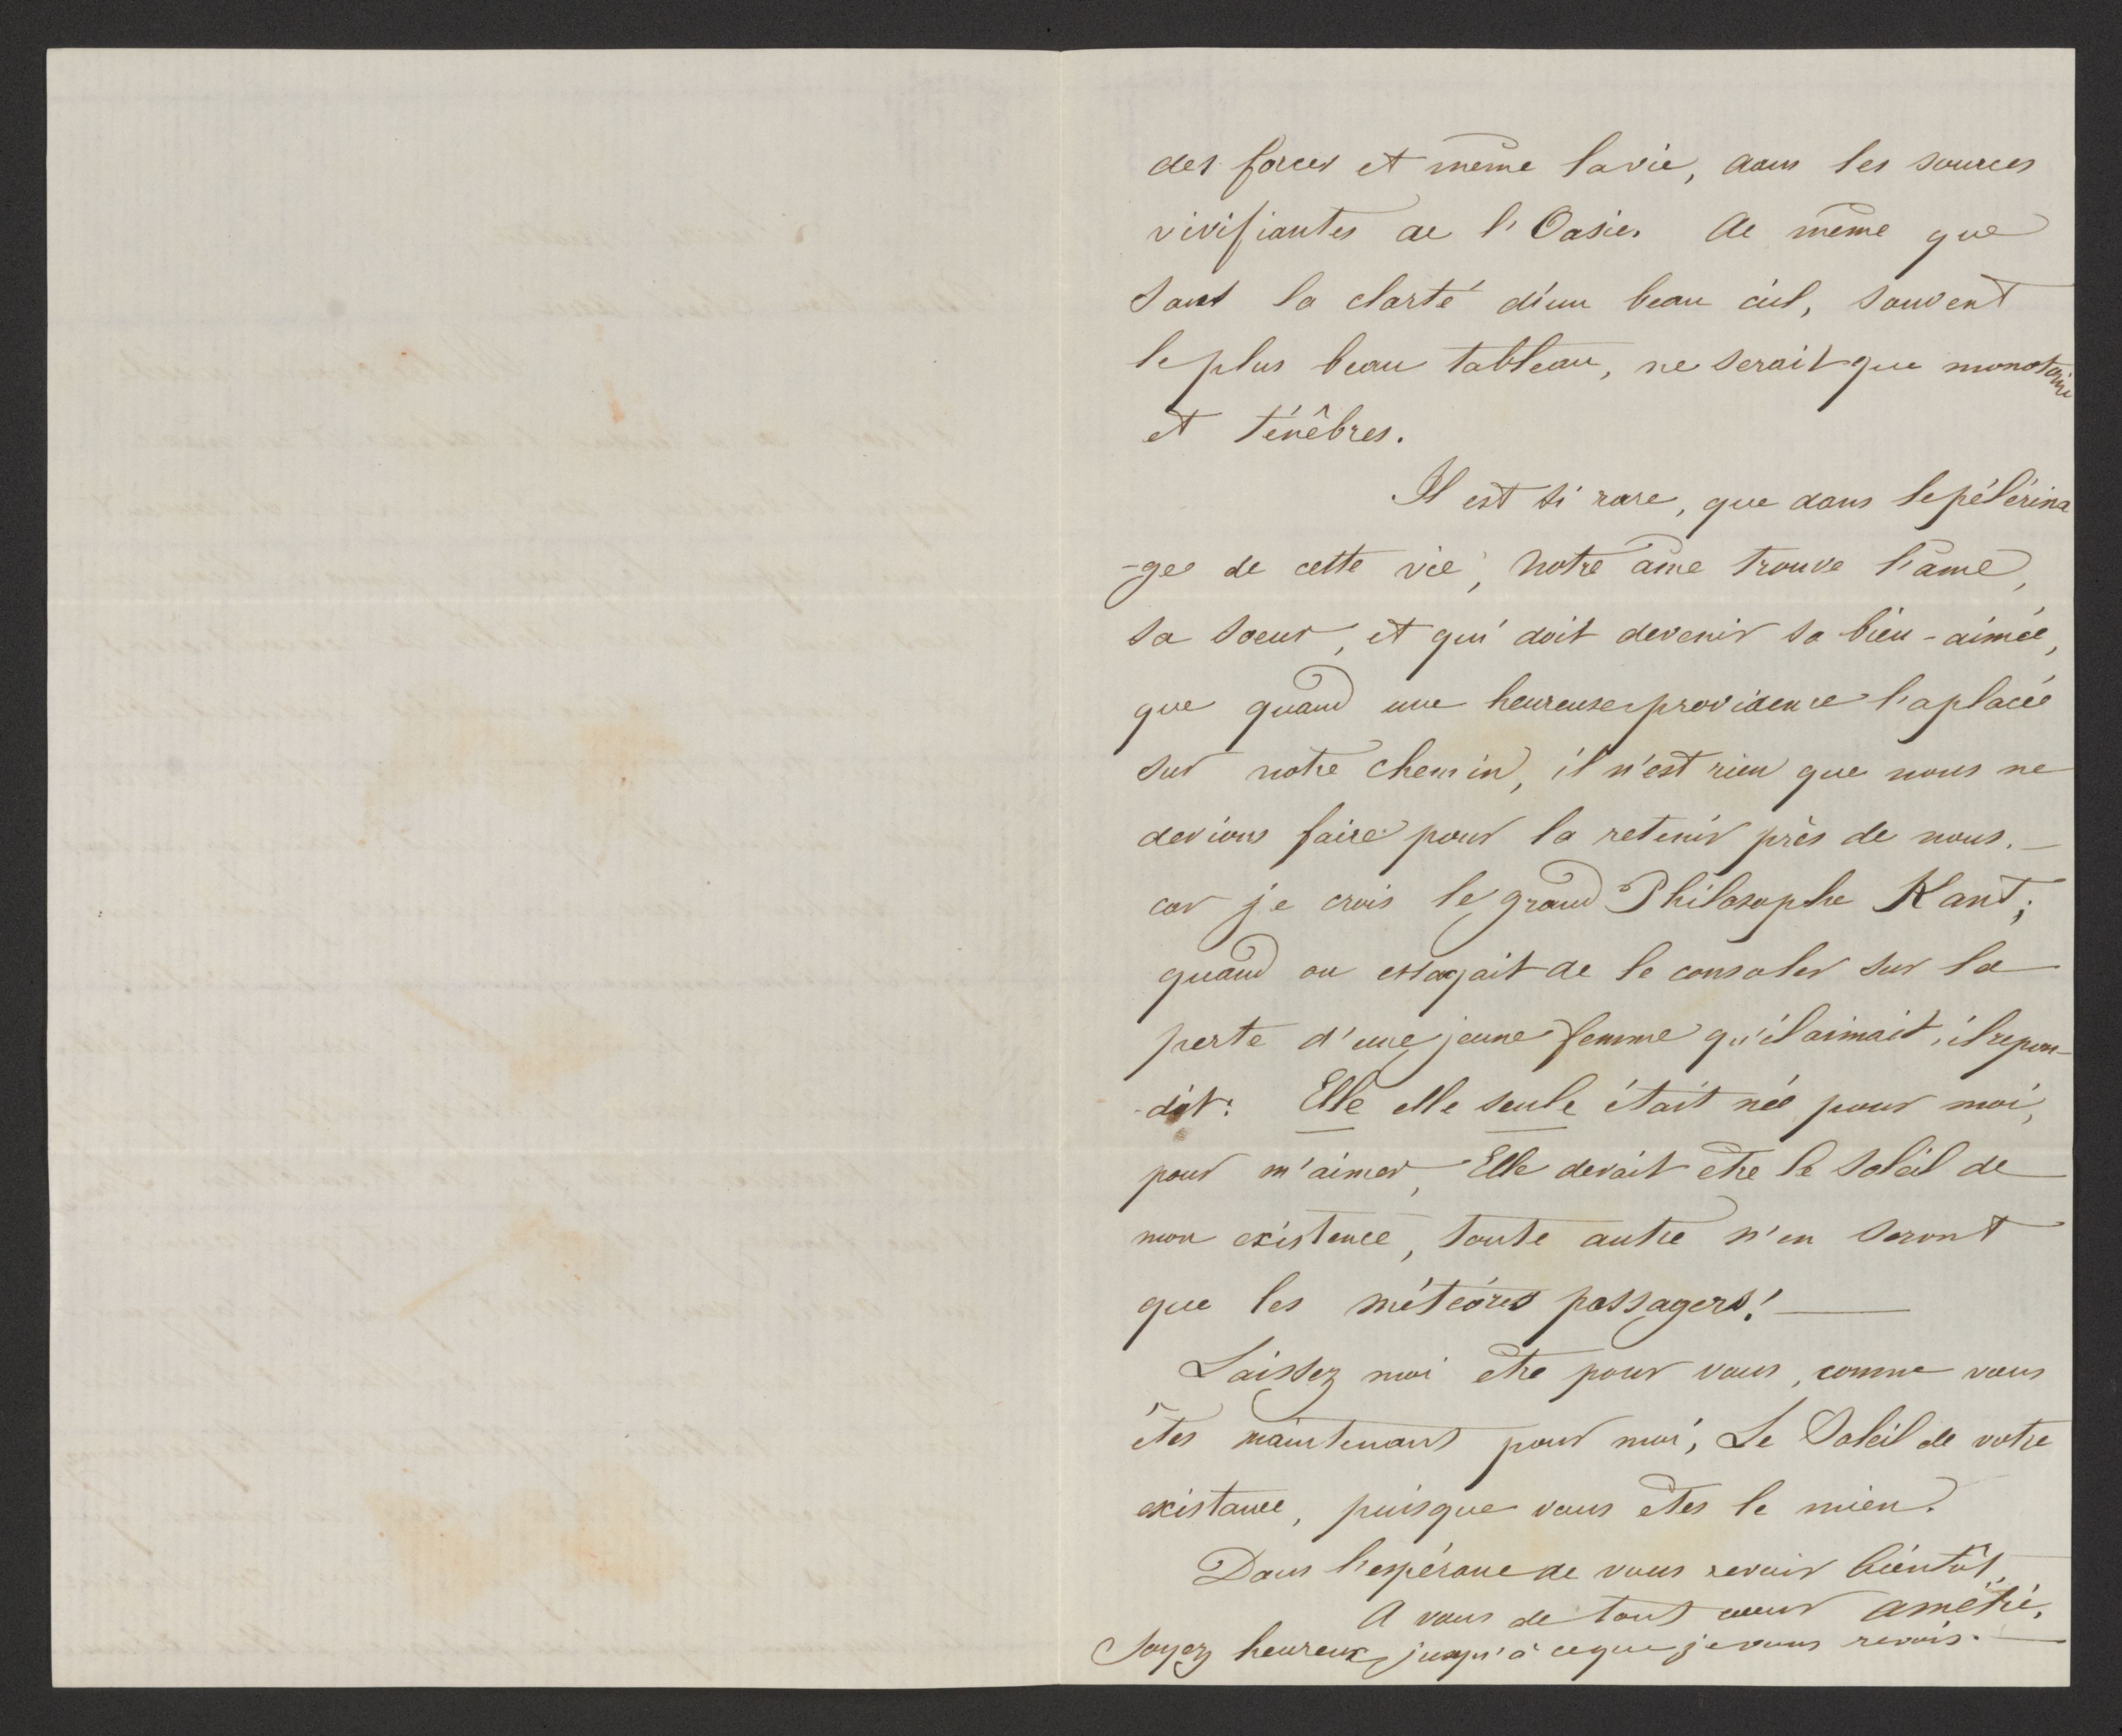 des forces et même la vie, dans les sources
vivifiantes de l'Oasie. de même que
sans la clarté d'un beau ciel, souvent
le plus beau tableau, ne serait que monotonie
et ténêbres.
Il est si rare, que dans le pélérina
-ge de cette vie, notre âme trouve l'âme,
sa soeur, et qui doit devenir sa bien-aimée,
que quand une heureuse providence l'a placée
sur notre chemin, il n'est rien que nous ne
devions faire pour la retenir près de nous. —
car je crois le grand Philosophe Kant;
quand on essayait de le consoler sur la
perte d'une jeune femme qu'il aimait, il repon-
-dit: Elle elle seule était née pour moi,
pour m'aimer, Elle devait etre le soleil de
mon existence, toute autre n'en seront
que les météores passagers! —
Laissez moi etre pour vous, comme vous
êtes maintenant pour moi, Le Soleil de votre
existance, puisque vous êtes le mien.
Dans l'espérance de vous revoir bientôt,
A vous de tout coeur
Soyez heureux, jusqu'à ceque je vous revois. —